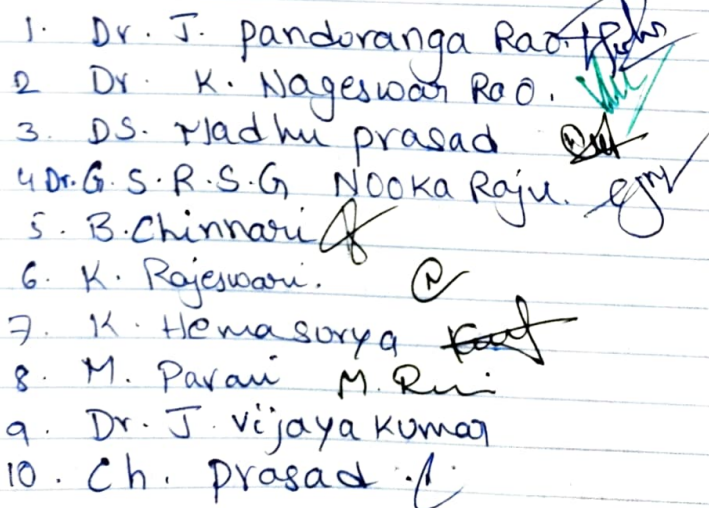 1. Dr. J. Panduranga Rao.
2 Dr. K. Nageswar Rao.
3. DS. Madhu prasad
4 Dr. G. S. R. S. G Nooka Raju.
5. B. Chinnari
6. K. Rajeswari.
7. K. Hemasurya
8. M. Pavani
9. Dr. J. Vijaya Kumar
10. Ch. Prasad